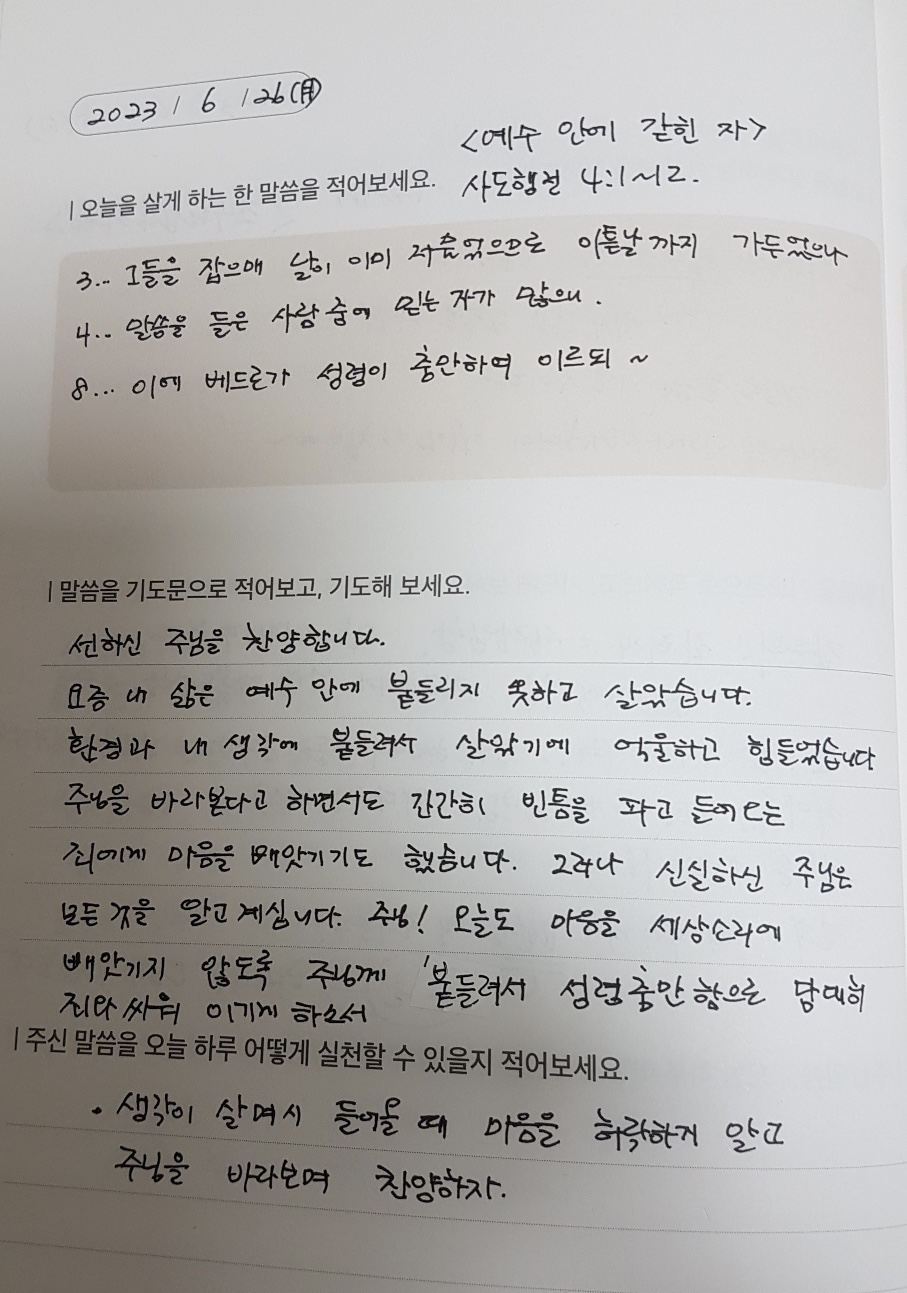 2023 / 6 / 26(月)
<예수 안에 갇힌 자>
사도행전 4:1~12.
| 오늘을 살게 하는 한 말씀을 적어보세요.
3.. 그들을 잡으매 날이 이미 저물었으므로 이튿날까지 가두었으나
4.. 말씀을 들은 사람 중에 믿는 자가 많으니.
8... 이에 베드로가 성령이 충만하여 이르되 ~
| 말씀을 기도문으로 적어보고, 기도해 보세요.
선하신 주님을 찬양합니다.
요즘 내 삶은 예수 안에 붙들리지 못하고 살았습니다.
환경과 내 생각에 붙들려서 살았기에 억울하고 힘들었습니다
주님을 바라본다고 하면서도 간간히 빈틈을 파고 들어오는
죄에게 마음을 빼앗기기도 했습니다. 그러나 신실하신 주님은
모든 것을 알고 계십니다. 주님! 오늘도 마음을 세상소리에
빼앗기지 않도록 주님께 '붙들려서 성령충만함으로 담대히
죄와 싸워 이기게 하소서
| 주신 말씀을 오늘 하루 어떻게 실천할 수 있을지 적어보세요.
• 생각이 살며시 들어올 때 마음을 허락하지 말고
주님을 바라보며 찬양하자.